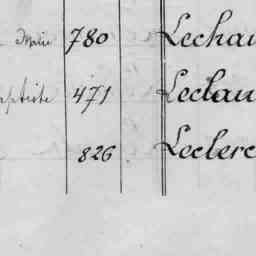 Marie 780 Lechau
aptiste 471 Leclau
826 Leclerc